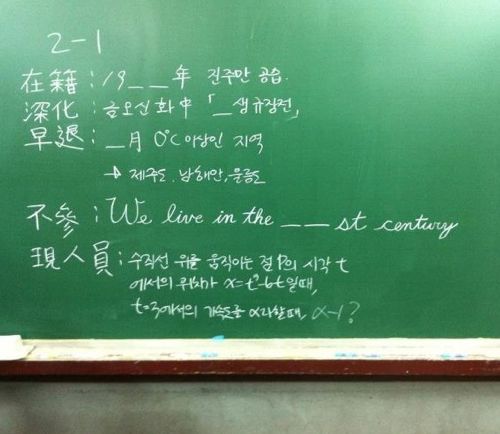 2-1
在籍 : 19 _ _ 年 진주만 공습.
深化 : 금오신화中 「_생규장전」
早退 : _月 0℃이상인 지역
→ 제주도, 남해안, 울릉도
不參 : We live in the _ _ st century
現人員 : 수직선 위를 움직이는 점 P의 시각 t
에서의 위치가 x=t³-6t 일때,
t=3에서의 가속도를 α라할때, α-1?